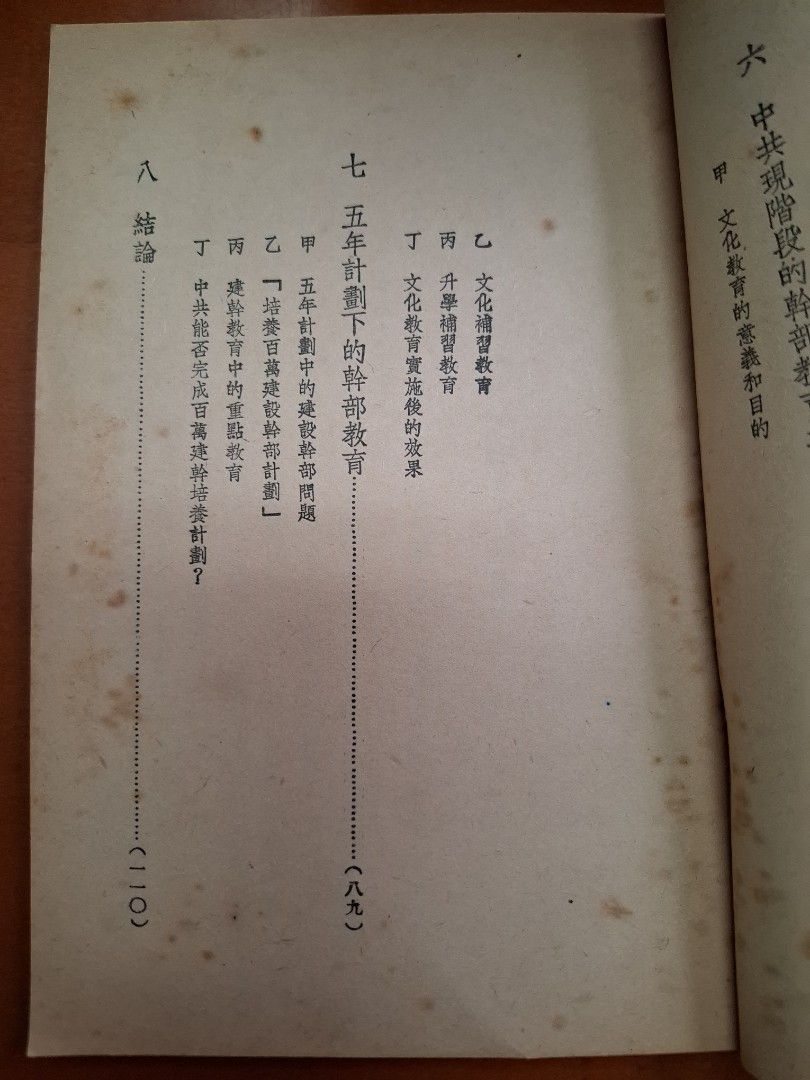 六　中共現階段的幹部教
甲　文化教育的意義和目的
乙　文化補習教育
丙　升學補習教育
丁　文化教育實施後的效果
七　五年計劃下的幹部教育……(八九)
甲　五年計劃中的建設幹部問題
乙　「培養百萬建設幹部計劃」
丙　建幹教育中的重點教育
丁　中共能否完成百萬建幹培養計劃？
八　結論……(一一〇)